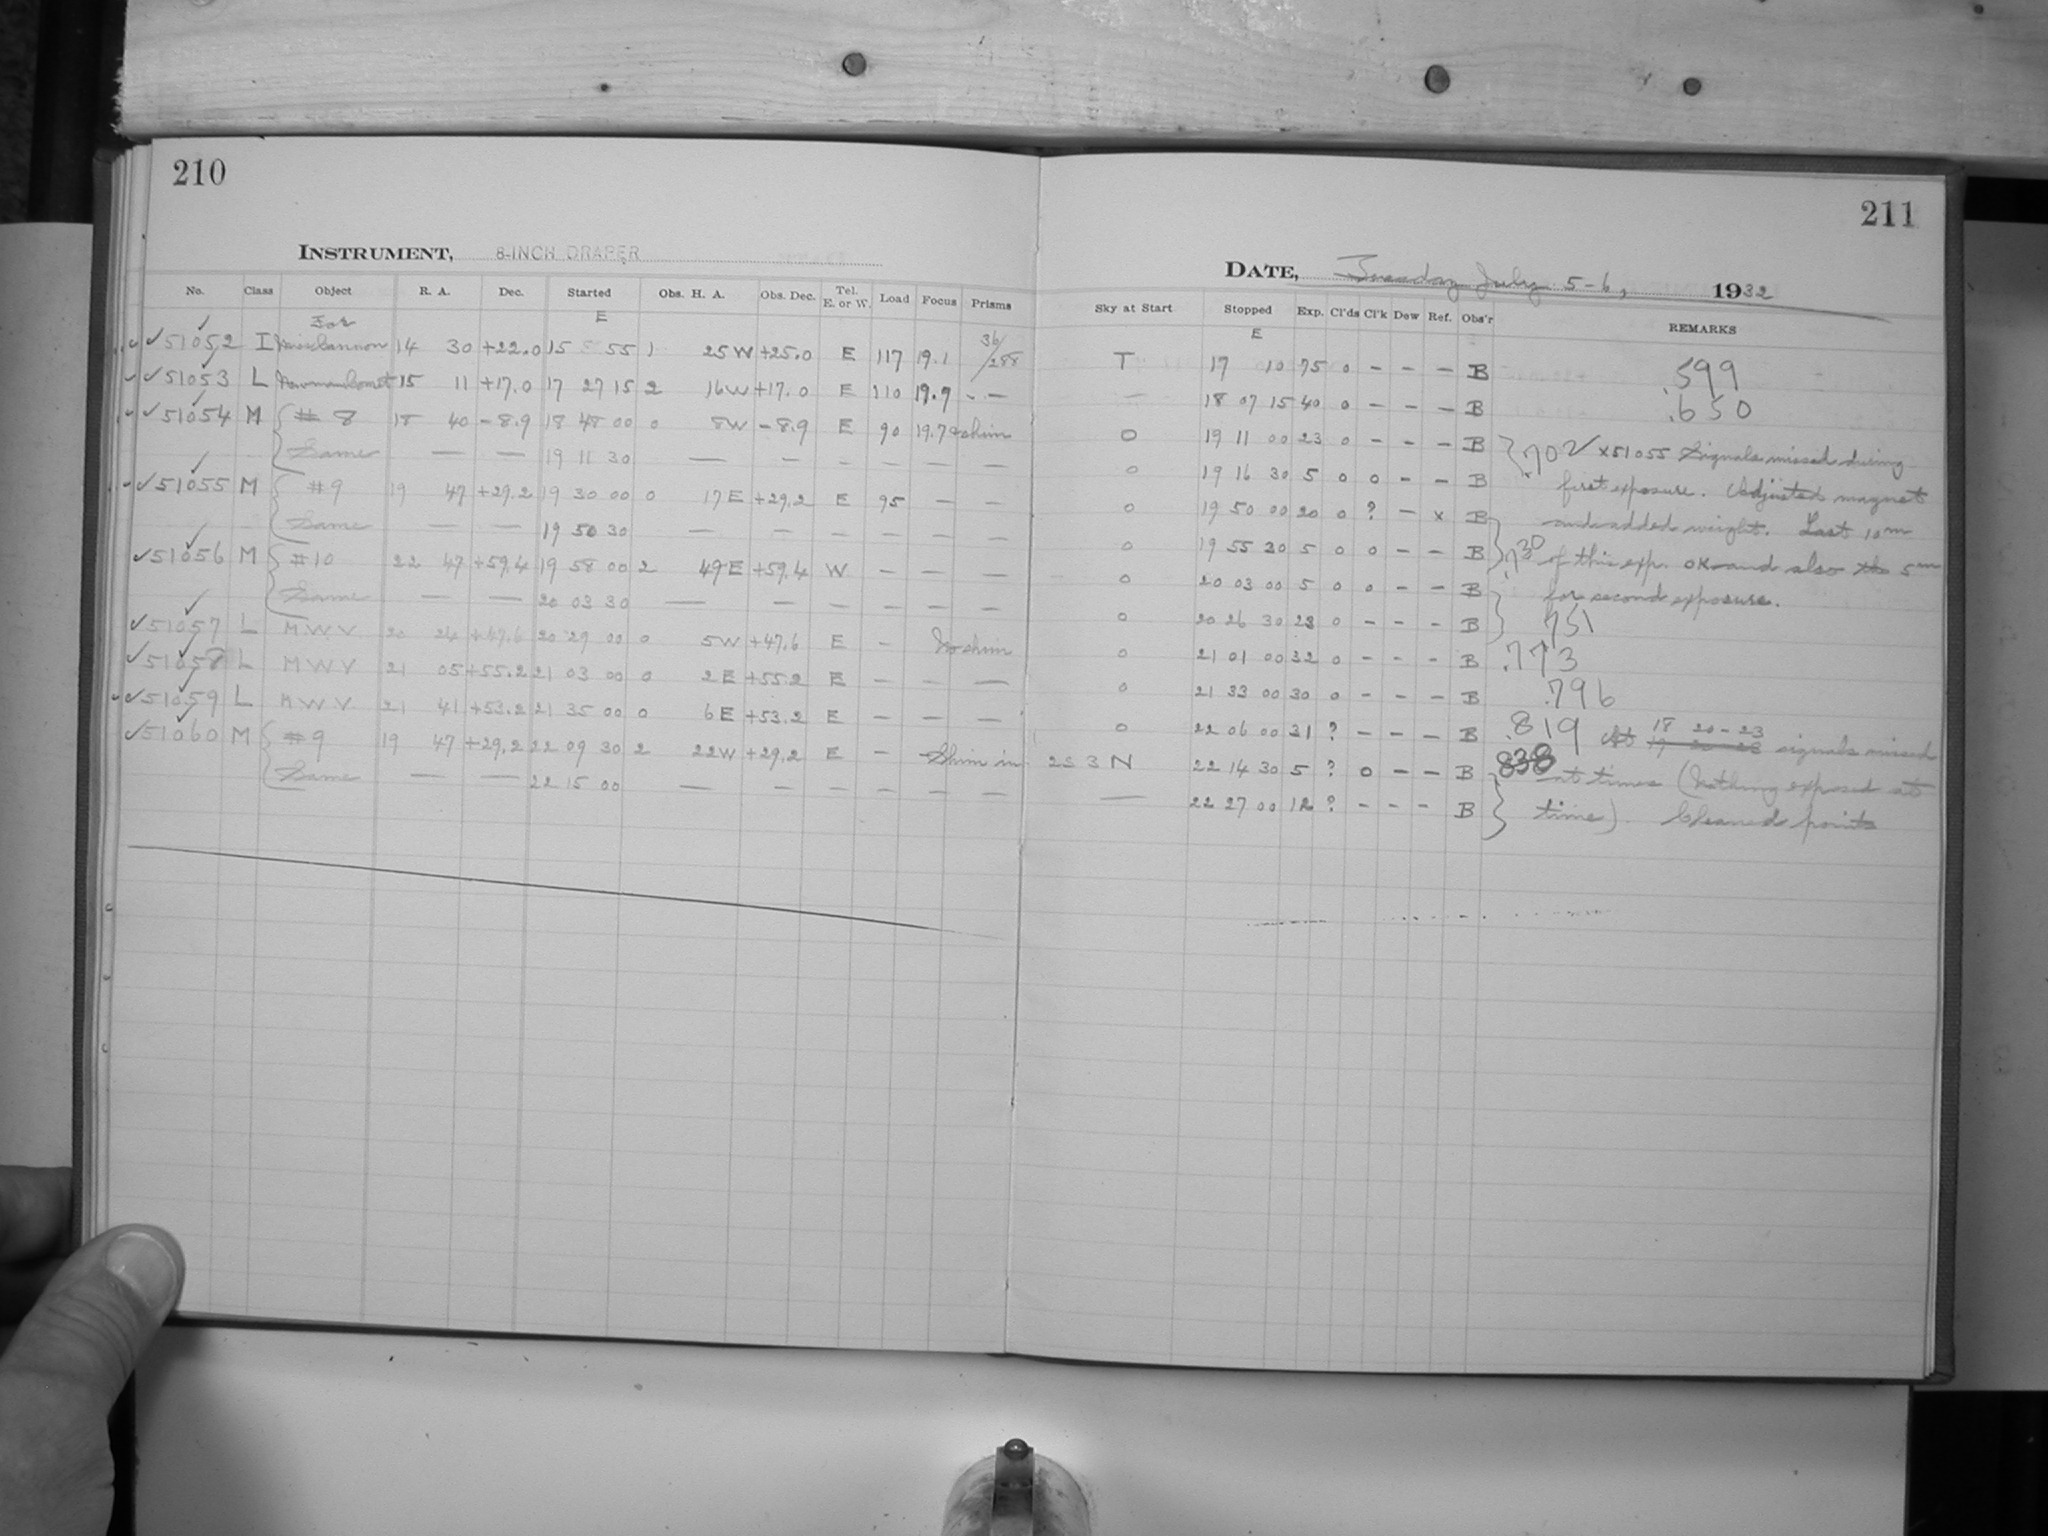 210
INSTRUMENT, 8-INCH DRAPER
No. Class Object R. A. Dec. Started Obs. H. A. Obs. Dec. Tel. E. or W. Load Focus Prisms
For E
✓51052 I Miss Cannon 14 30 +22.0 15 55 1 25W +25.0 E 117 19.1 36/288
✓51053 L Newman Comet 15 11 +17.0 17 27 15 2 16W +17.0 E 110 19.7 - —
✓51054 M # 8 18 40 -8.9 18 48 00 0 8W -8.9 E 90 19.7 shim
Same — — 19 11 30 — — — — — —
✓51055 M #9 19 47 +29.2 19 30 00 0 17E +29.2 E 95 — —
Same — — 19 50 30 — — — — — —
✓51056 M #10 22 47 +59.4 19 58 00 2 49E +59.4 W — — —
Same — — 20 03 30 — — — — — —
✓51057 L MWV 20 24 +47.6 20 29 00 0 5W +47.6 E — No shim
✓51058 L MWV 21 05 +55.2 21 03 00 0 2E +55.2 E — — —
✓51059 L MWV 21 41 +53.2 21 35 00 0 6E +53.2 E — — —
✓51060 M #9 19 47 +29.2 22 09 30 2 22W +29.2 E — Shim in
Same — — 22 15 00 — — — — — —
211
DATE, Tuesday July 5-6, 1932
Sky at Start Stopped Exp. Cl'ds Cl'k Dew Ref. Obs'r REMARKS
E
T 17 10 75 0 - - - B .599
— 18 07 15 40 0 - - - B .650
0 19 11 00 23 0 - - - B .702 ✓ x51055 Signals missed during
0 19 16 30 5 0 0 - - B first exposure. Adjusted magnet
0 19 50 00 20 0 ? - x B and added weight. Last 10m
0 19 55 30 5 0 0 - - B .730 of this exp. OK and also 5m
0 20 03 00 5 0 0 - - B for second exposure.
0 20 26 30 23 0 - - - B .751
0 21 01 00 32 0 - - - B .773
0 21 33 00 30 0 - - - B .796
0 22 06 00 31 ? - - - B .819 At 18 20-23 signals missed
2S 3 N 22 14 30 5 ? 0 - - B 838 at times (Nothing exposed at
— 22 27 00 12 ? - - - B time). Cleaned points